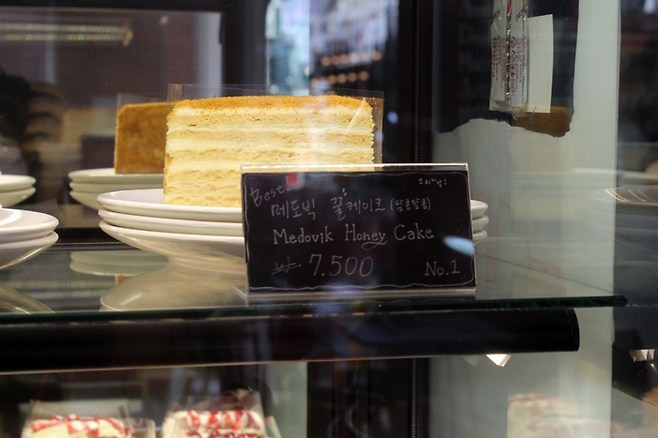 Best!
메도빅 꿀케이크 (달콤달콤)
Medovik Honey Cake
₩ 7.500 No.1